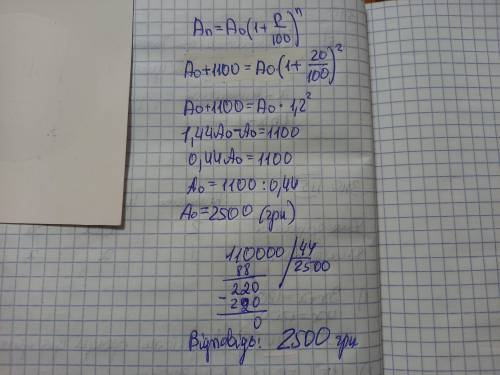 An=A0(1+P/100)^n
A0+1100=A0(1+20/100)^2
A0+1100=A0·1,2²
1,44A0-A0=1100
0,44A0=1100
A0=1100:0,44
A0=2500 (грн)
110000 /44
88 2500
220
-220
0
Відповідь: 2500 грн